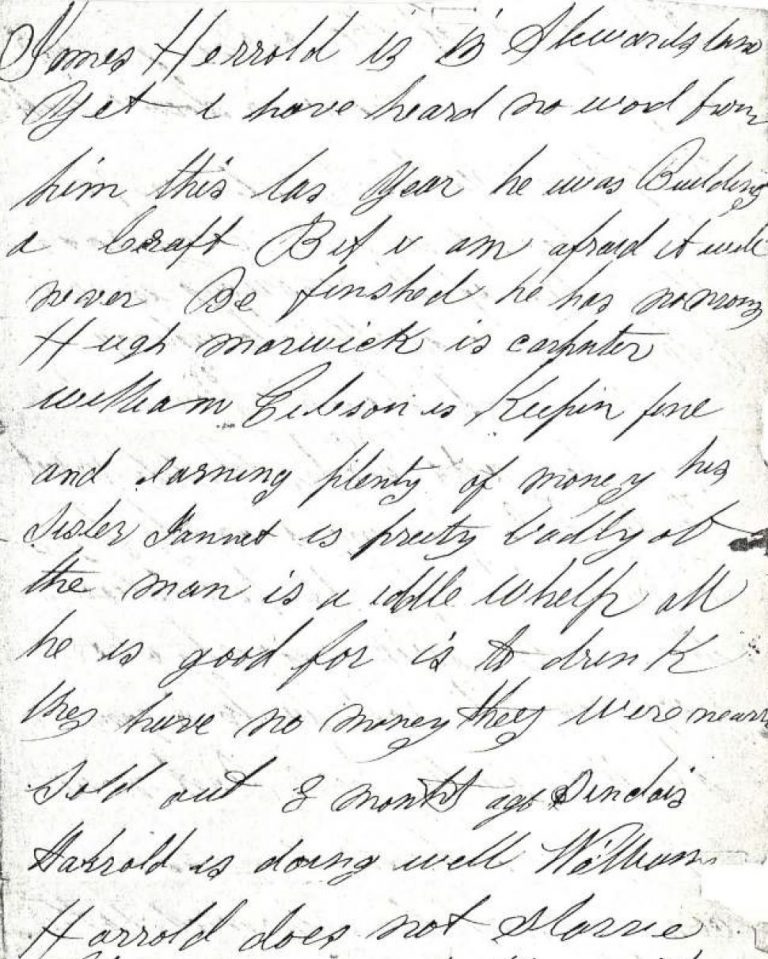 James Herrold is in Stewards
Yet i have heard no word from
him this las Year he was Building
a Craft But i am afraid it will
never Be finshed he has no mony
Hugh marwick is carpnter
william Gibson is Keepin fine
and earning plenty of money his
Sister Jannet is pretty badly of
the man is a iddle whelp all
he is good for is to drink
they have no money they were near
Sold out 8 month ago Sinclair
Harrold is doing well William
Harrold does not starve